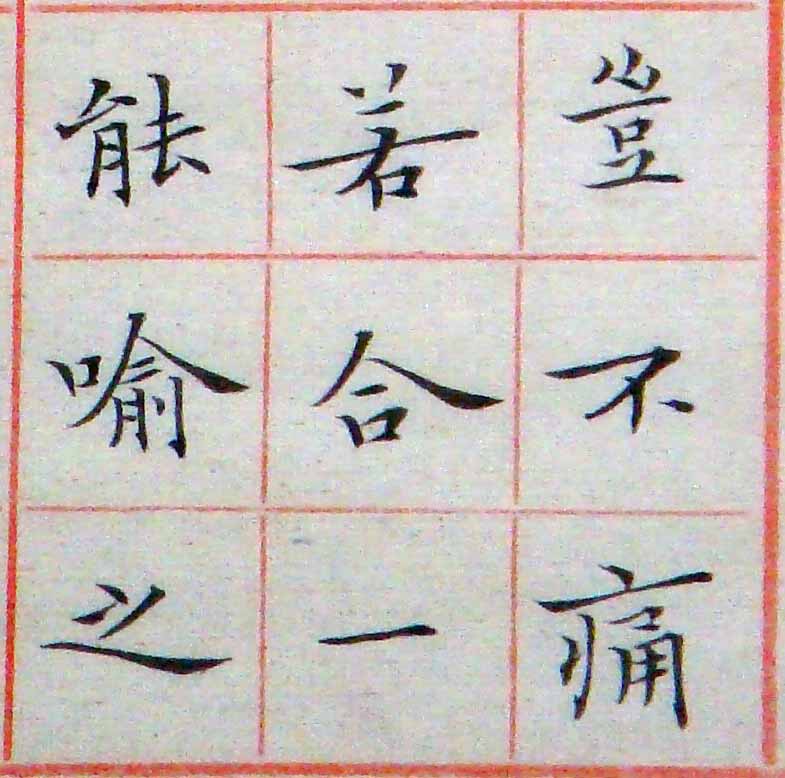 豈不痛
若合一
能喻之